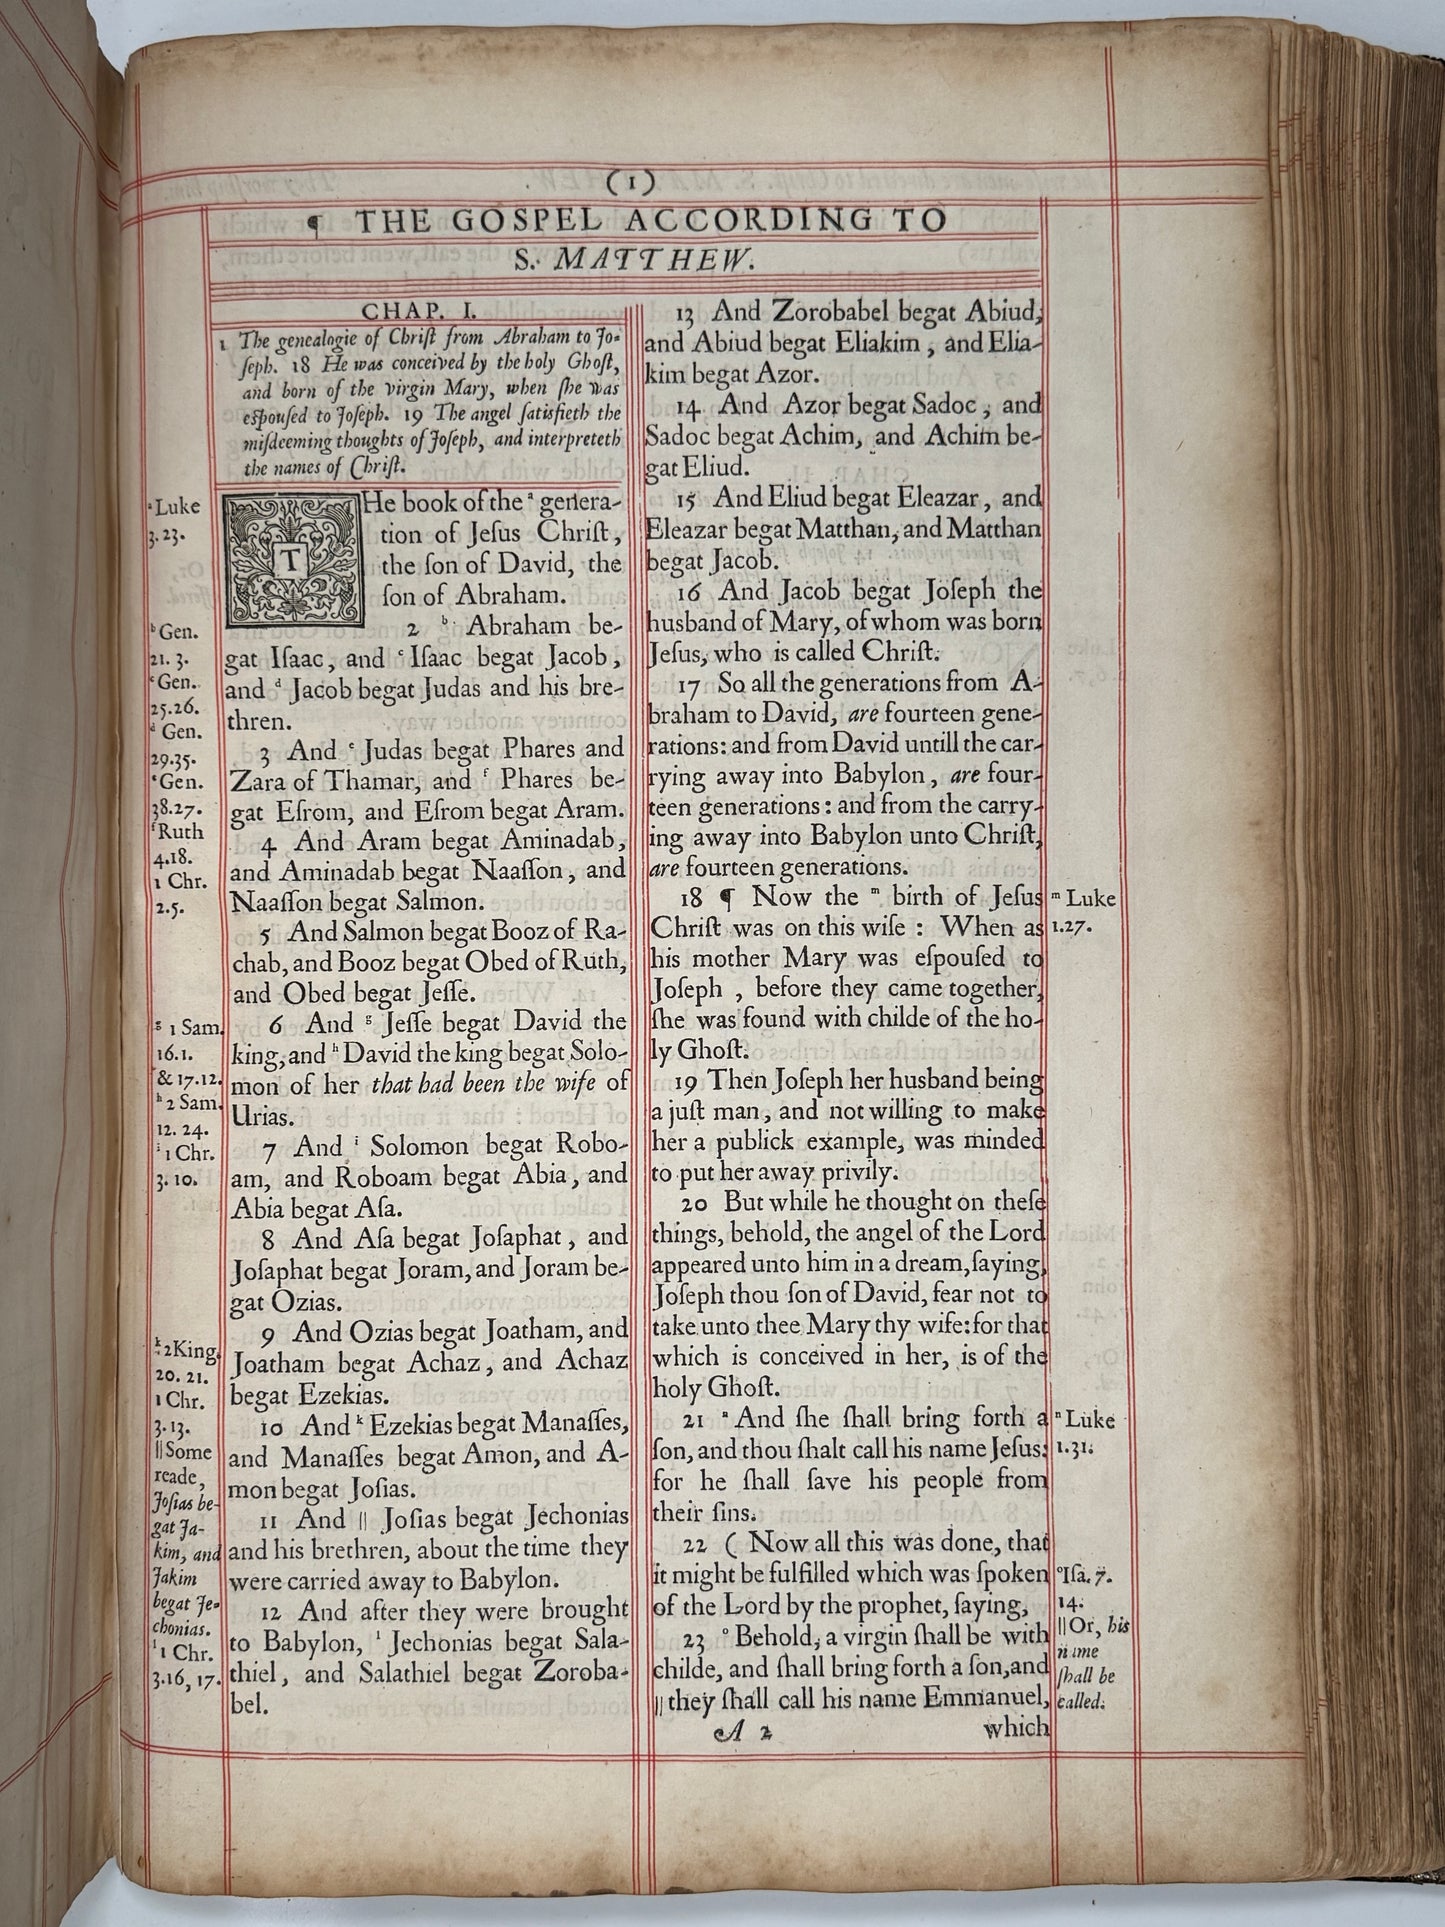 (1)
¶ THE GOSPEL ACCORDING TO
S. MATTHEW.
CHAP. I.
1 The genealogie of Chriſt from Abraham to Jo-
ſeph. 18 He was conceived by the holy Ghoſt,
and born of the virgin Mary, when ſhe was
eſpouſed to Joſeph. 19 The angel ſatisfieth the
miſdeeming thoughts of Joſeph, and interpreteth
the names of Chriſt.
THe book of the ᵃ genera-
tion of Jeſus Chriſt,
the ſon of David, the
ſon of Abraham.
2 ᵇ Abraham be-
gat Iſaac, and ᶜ Iſaac begat Jacob,
and ᵈ Jacob begat Judas and his bre-
thren.
3 And ᵉ Judas begat Phares and
Zara of Thamar, and ᶠ Phares be-
gat Eſrom, and Eſrom begat Aram.
4 And Aram begat Aminadab,
and Aminadab begat Naaſſon, and
Naaſſon begat Salmon.
5 And Salmon begat Booz of Ra-
chab, and Booz begat Obed of Ruth,
and Obed begat Jeſſe.
6 And ᵍ Jeſſe begat David the
king, and ʰ David the king begat Solo-
mon of her that had been the wife of
Urias.
7 And ⁱ Solomon begat Robo-
am, and Roboam begat Abia, and
Abia begat Aſa.
8 And Aſa begat Joſaphat, and
Joſaphat begat Joram, and Joram be-
gat Ozias.
9 And Ozias begat Joatham, and
Joatham begat Achaz, and Achaz
begat Ezekias.
10 And ᵏ Ezekias begat Manaſſes,
and Manaſſes begat Amon, and A-
mon begat Joſias.
11 And || Joſias begat Jechonias
and his brethren, about the time they
were carried away to Babylon.
12 And after they were brought
to Babylon, ˡ Jechonias begat Sala-
thiel, and Salathiel begat Zoroba-
bel.
ᵃ Luke
3. 23.
ᵇ Gen.
21. 3.
ᶜ Gen.
25. 26.
ᵈ Gen.
29. 35.
ᵉ Gen.
38. 27.
ᶠ Ruth
4. 18.
1 Chr.
2. 5.
ᵍ 1 Sam.
16. 1.
& 17. 12.
ʰ 2 Sam.
12. 24.
ⁱ 1 Chr.
3. 10.
ᵏ 2 King.
20. 21.
1 Chr.
3. 13.
|| Some
reade,
Joſias be-
gat Ja-
kim, and
Jakim
begat Je-
chonias.
ˡ 1 Chr.
3. 16, 17.
13 And Zorobabel begat Abiud,
and Abiud begat Eliakim, and Elia-
kim begat Azor.
14 And Azor begat Sadoc, and
Sadoc begat Achim, and Achim be-
gat Eliud.
15 And Eliud begat Eleazar, and
Eleazar begat Matthan, and Matthan
begat Jacob.
16 And Jacob begat Joſeph the
husband of Mary, of whom was born
Jeſus, who is called Chriſt.
17 So all the generations from A-
braham to David, are fourteen gene-
rations: and from David untill the car-
rying away into Babylon, are four-
teen generations: and from the carry-
ing away into Babylon unto Chriſt,
are fourteen generations.
18 ¶ Now the ᵐ birth of Jeſus
Chriſt was on this wiſe : When as
his mother Mary was eſpouſed to
Joſeph, before they came together,
ſhe was found with childe of the ho-
ly Ghoſt.
19 Then Joſeph her husband being
a juſt man, and not willing to make
her a publick example, was minded
to put her away privily.
20 But while he thought on theſe
things, behold, the angel of the Lord
appeared unto him in a dream, ſaying,
Joſeph thou ſon of David, fear not to
take unto thee Mary thy wife: for that
which is conceived in her, is of the
holy Ghoſt.
21 ⁿ And ſhe ſhall bring forth a
ſon, and thou ſhalt call his name Jeſus:
for he ſhall ſave his people from
their ſins.
22 ( Now all this was done, that
it might be fulfilled which was ſpoken
of the Lord by the prophet, ſaying,
23 ᵒ Behold, a virgin ſhall be with
childe, and ſhall bring forth a ſon, and
|| they ſhall call his name Emmanuel,
A 2 which
ᵐ Luke
1. 27.
ⁿ Luke
1. 31.
ᵒ Iſa. 7.
14.
|| Or, his
name
ſhall be
called.